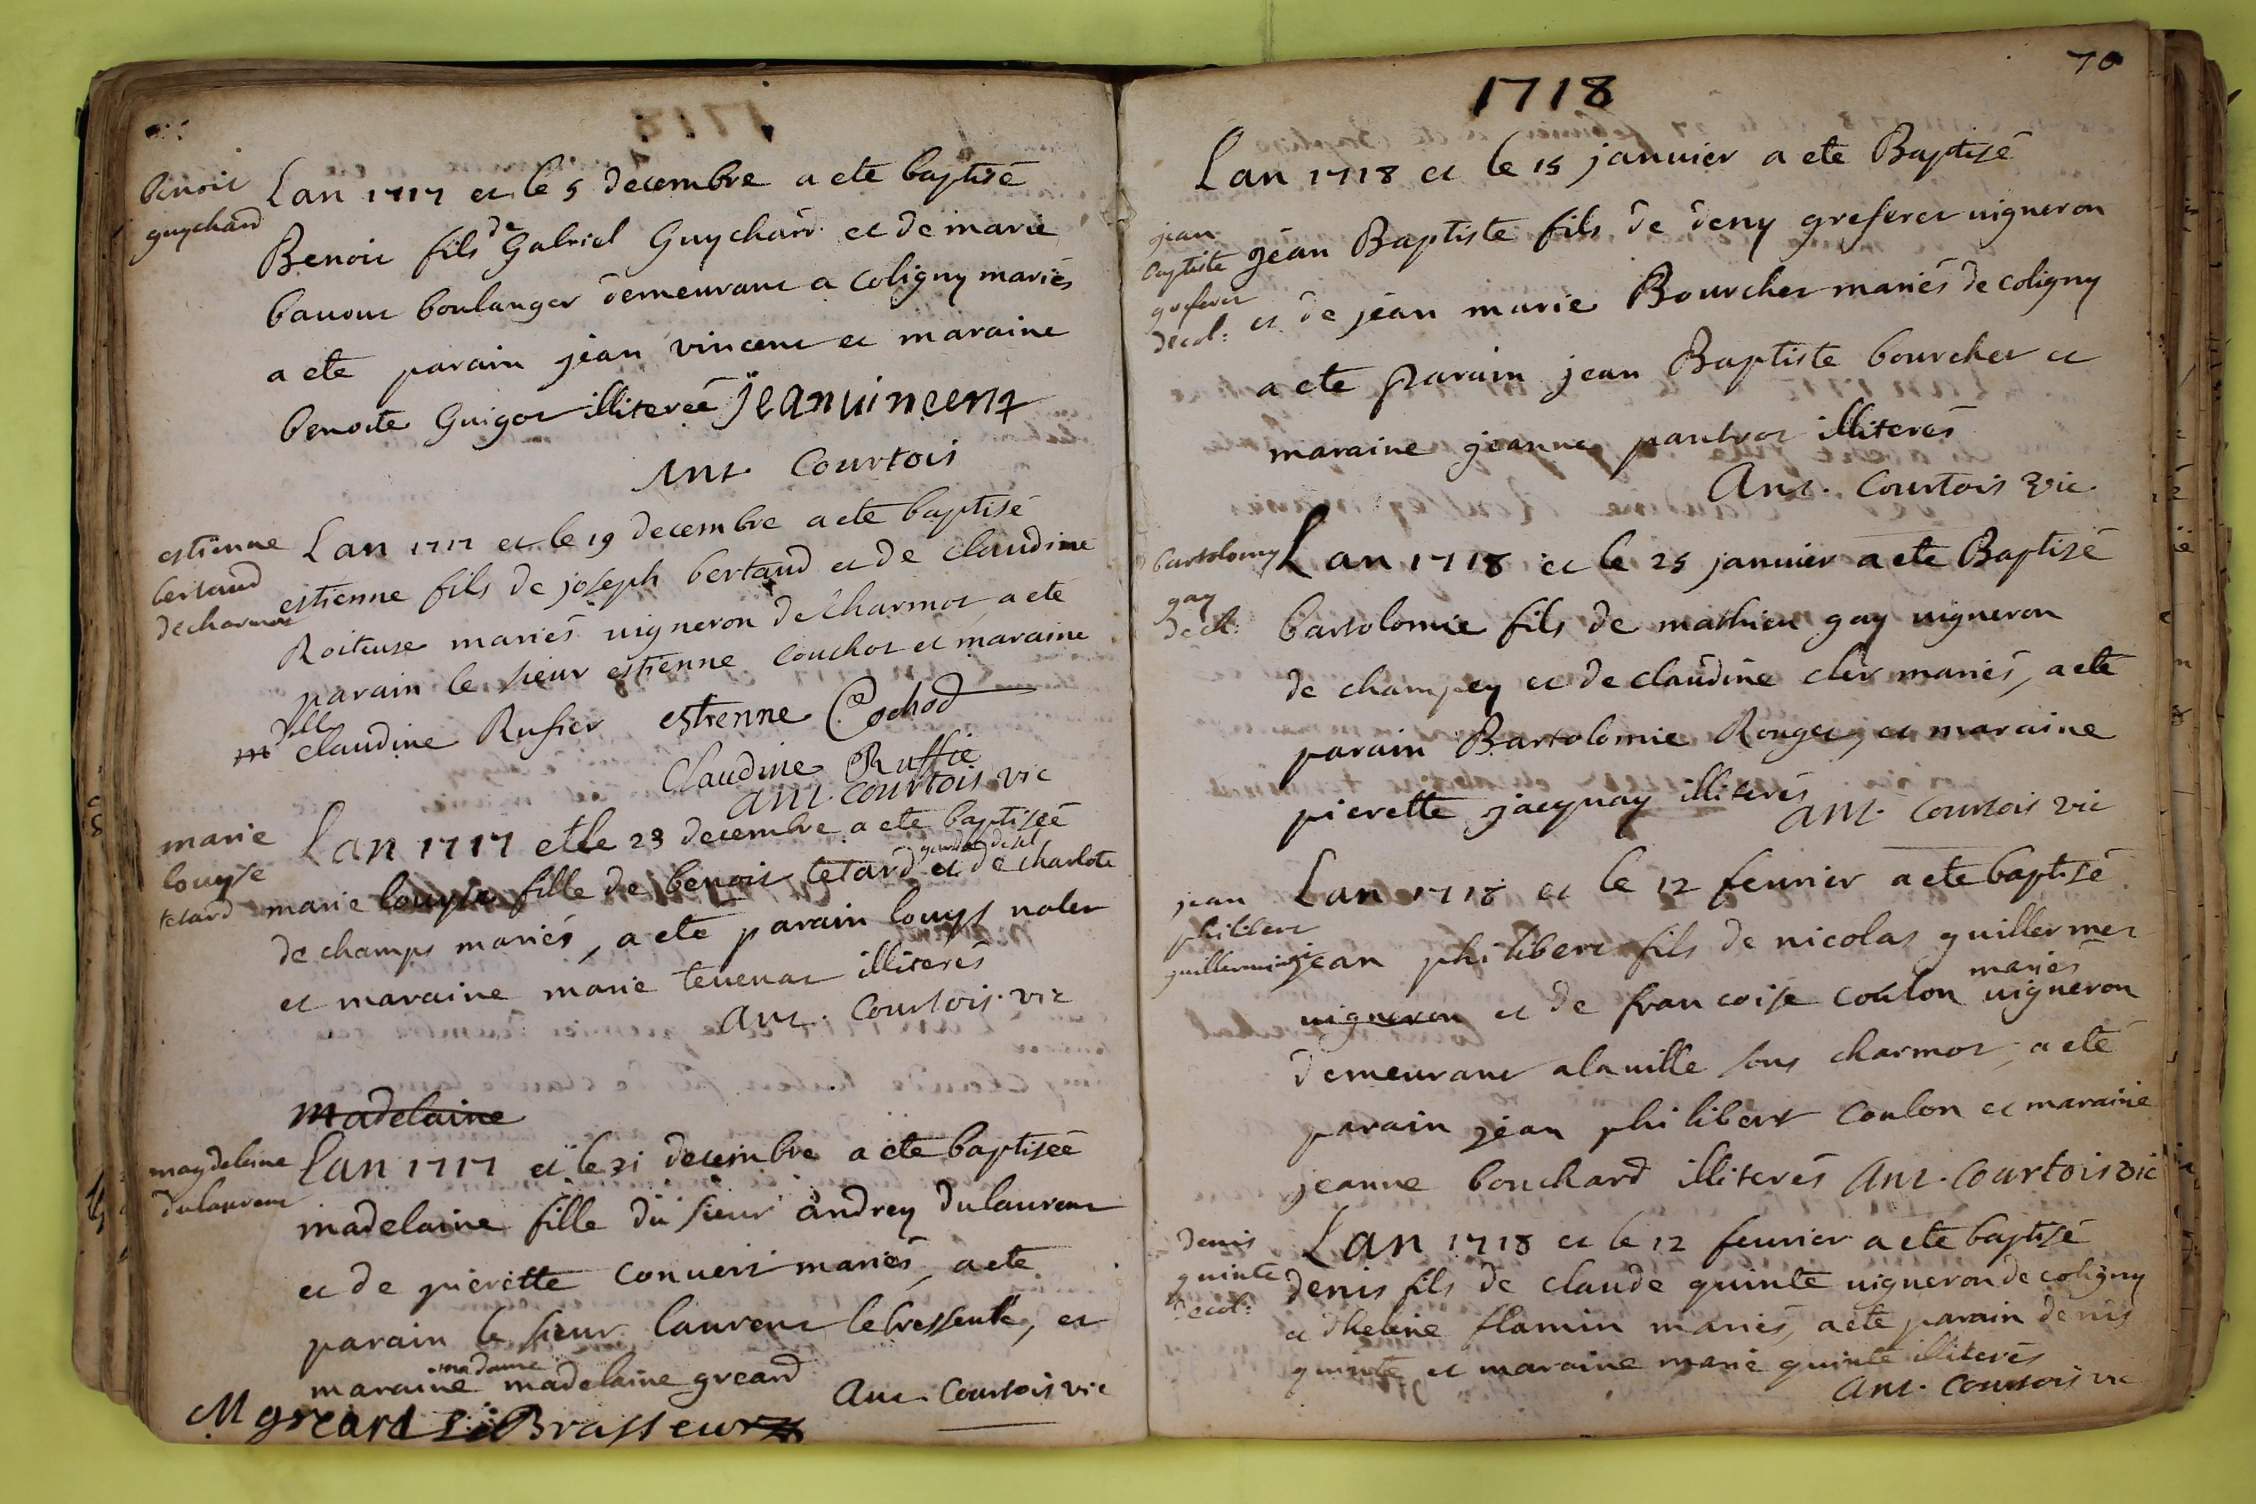 benoit
guychard
Lan 1717 et le 5 decembre a ete baptisé
Benoit fils de Gabriel Guychard et de marie
bauout boulanger demeurant a coligny mariés
a ete parain jean vincent et maraine
benoite Guigot illitereé jeanuincent
Ant. Courtois
estienne
bertaud
de charmot
Lan 1717 et le 19 decembre a ete baptisé
estienne fils de joseph bertaud et de claudine
Roiteuse mariés uigneron de charmot a eté
parain le sieur estienne couchot et maraine
dlle claudine Rufier estienne Cochod
Claudine Ruffie
ant. courtois vic
marie
louyse
tetard
Lan 1717 et le 23 decembre a ete baptiseé
marie louyse fille de benoit tetard et de charlote
de champs mariés, a ete parain louys noler
et maraine marie teuenat illiterés
ant. Courtois. vic
madelaine
magdeleine
dulaurent
Lan 1717 et le 31 decembre a ete baptiseé
madelaine fille du sieur andrey dulaurent
et de pierette conuert mariés, a ete
parain le sieur laurent lebrasseur, et
maraine madame madelaine greard
ant. Courtois vic
M greard L Brasseur
70
1718
Lan 1718 et le 15 januier a ete Baptisé
jean
baptiste
greferet
de col:
jean Baptiste fils de deny greferet uigneron
et de jean marie Bourchet mariés de coligny
a ete parain jean Baptiste bourchet et
maraine jeanne pautrot illiterés
Ant. Courtois vic
bartolomy
gay
de cl:
Lan 1718 et le 25 januier a ete Baptisé
bartolomie fils de mathieu gay uigneron
de champey et de claudine cler mariés, a eté
parain Bartolomie Rouget, et maraine
pierette jacquay illiterés
ant. Courtois vic
jean
philibert
guillerminet
Lan 1718 et le 12 feurier a ete baptisé
jean philibert fils de nicolas guillermet
uigneron et de francoise coulon mariés uigneron
demeurant alauille sous charmot, a eté
parain jean philibert Coulon et maraine
jeanne bouchard illiterés Ant. Courtois vic
denis
quinte
de col:
Lan 1718 et le 12 feurier a ete baptisé
denis fils de claude quinte uigneron de coligny
et dheleine flamin mariés, a ete parain denis
quinte et maraine marie quinte illiterés
ant. Courtois vic